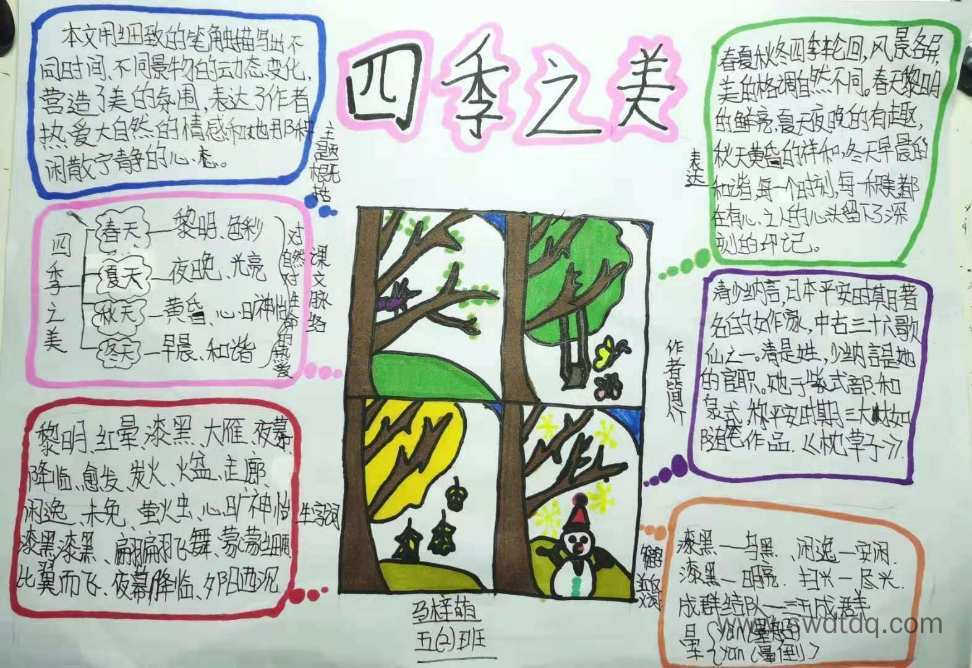 四季之美
本文用细致的笔触描写出不
同时间、不同景物的动态变化,
营造了美的氛围,表达了作者
热爱大自然的情感和她那种
闲散宁静的心态。
主题概括
四季之美
春天—黎明、色彩
夏天—夜晚、光亮
秋天—黄昏、心旷神怡
冬天—早晨、和谐
对自然对生命的热爱
课文脉络
黎明、红晕、漆黑、大雁、夜幕
降临、愈发、炭火、火盆、走廊、
闲逸、未免、萤火虫、心旷神怡
漆黑漆黑、翩翩飞舞、蒙蒙细雨
比翼而飞、夜幕降临、夕阳西沉
生字词
春夏秋冬四季轮回,风景各异,
美的格调自然不同。春天黎明
的鲜亮,夏天夜晚的有趣,
秋天黄昏的祥和,冬天早晨的
和谐,每一个时刻,每一种景都
在有心之人的心头留下了深
刻的印记。
表达
清少纳言,日本平安时期著
名的女作家,中古三十六歌
仙之一,清是姓,少纳言是她
的官职。她与紫式部、和
泉式部,称平安时期三大才女
随笔作品《枕草子》。
作者简介
漆黑—乌黑 闲逸—安闲
漆黑—明亮 扫兴—尽兴
成群结队—三五成群
晕{yùn(晕船)
yūn(晕倒)
五(2)班
www.swdtdq.com